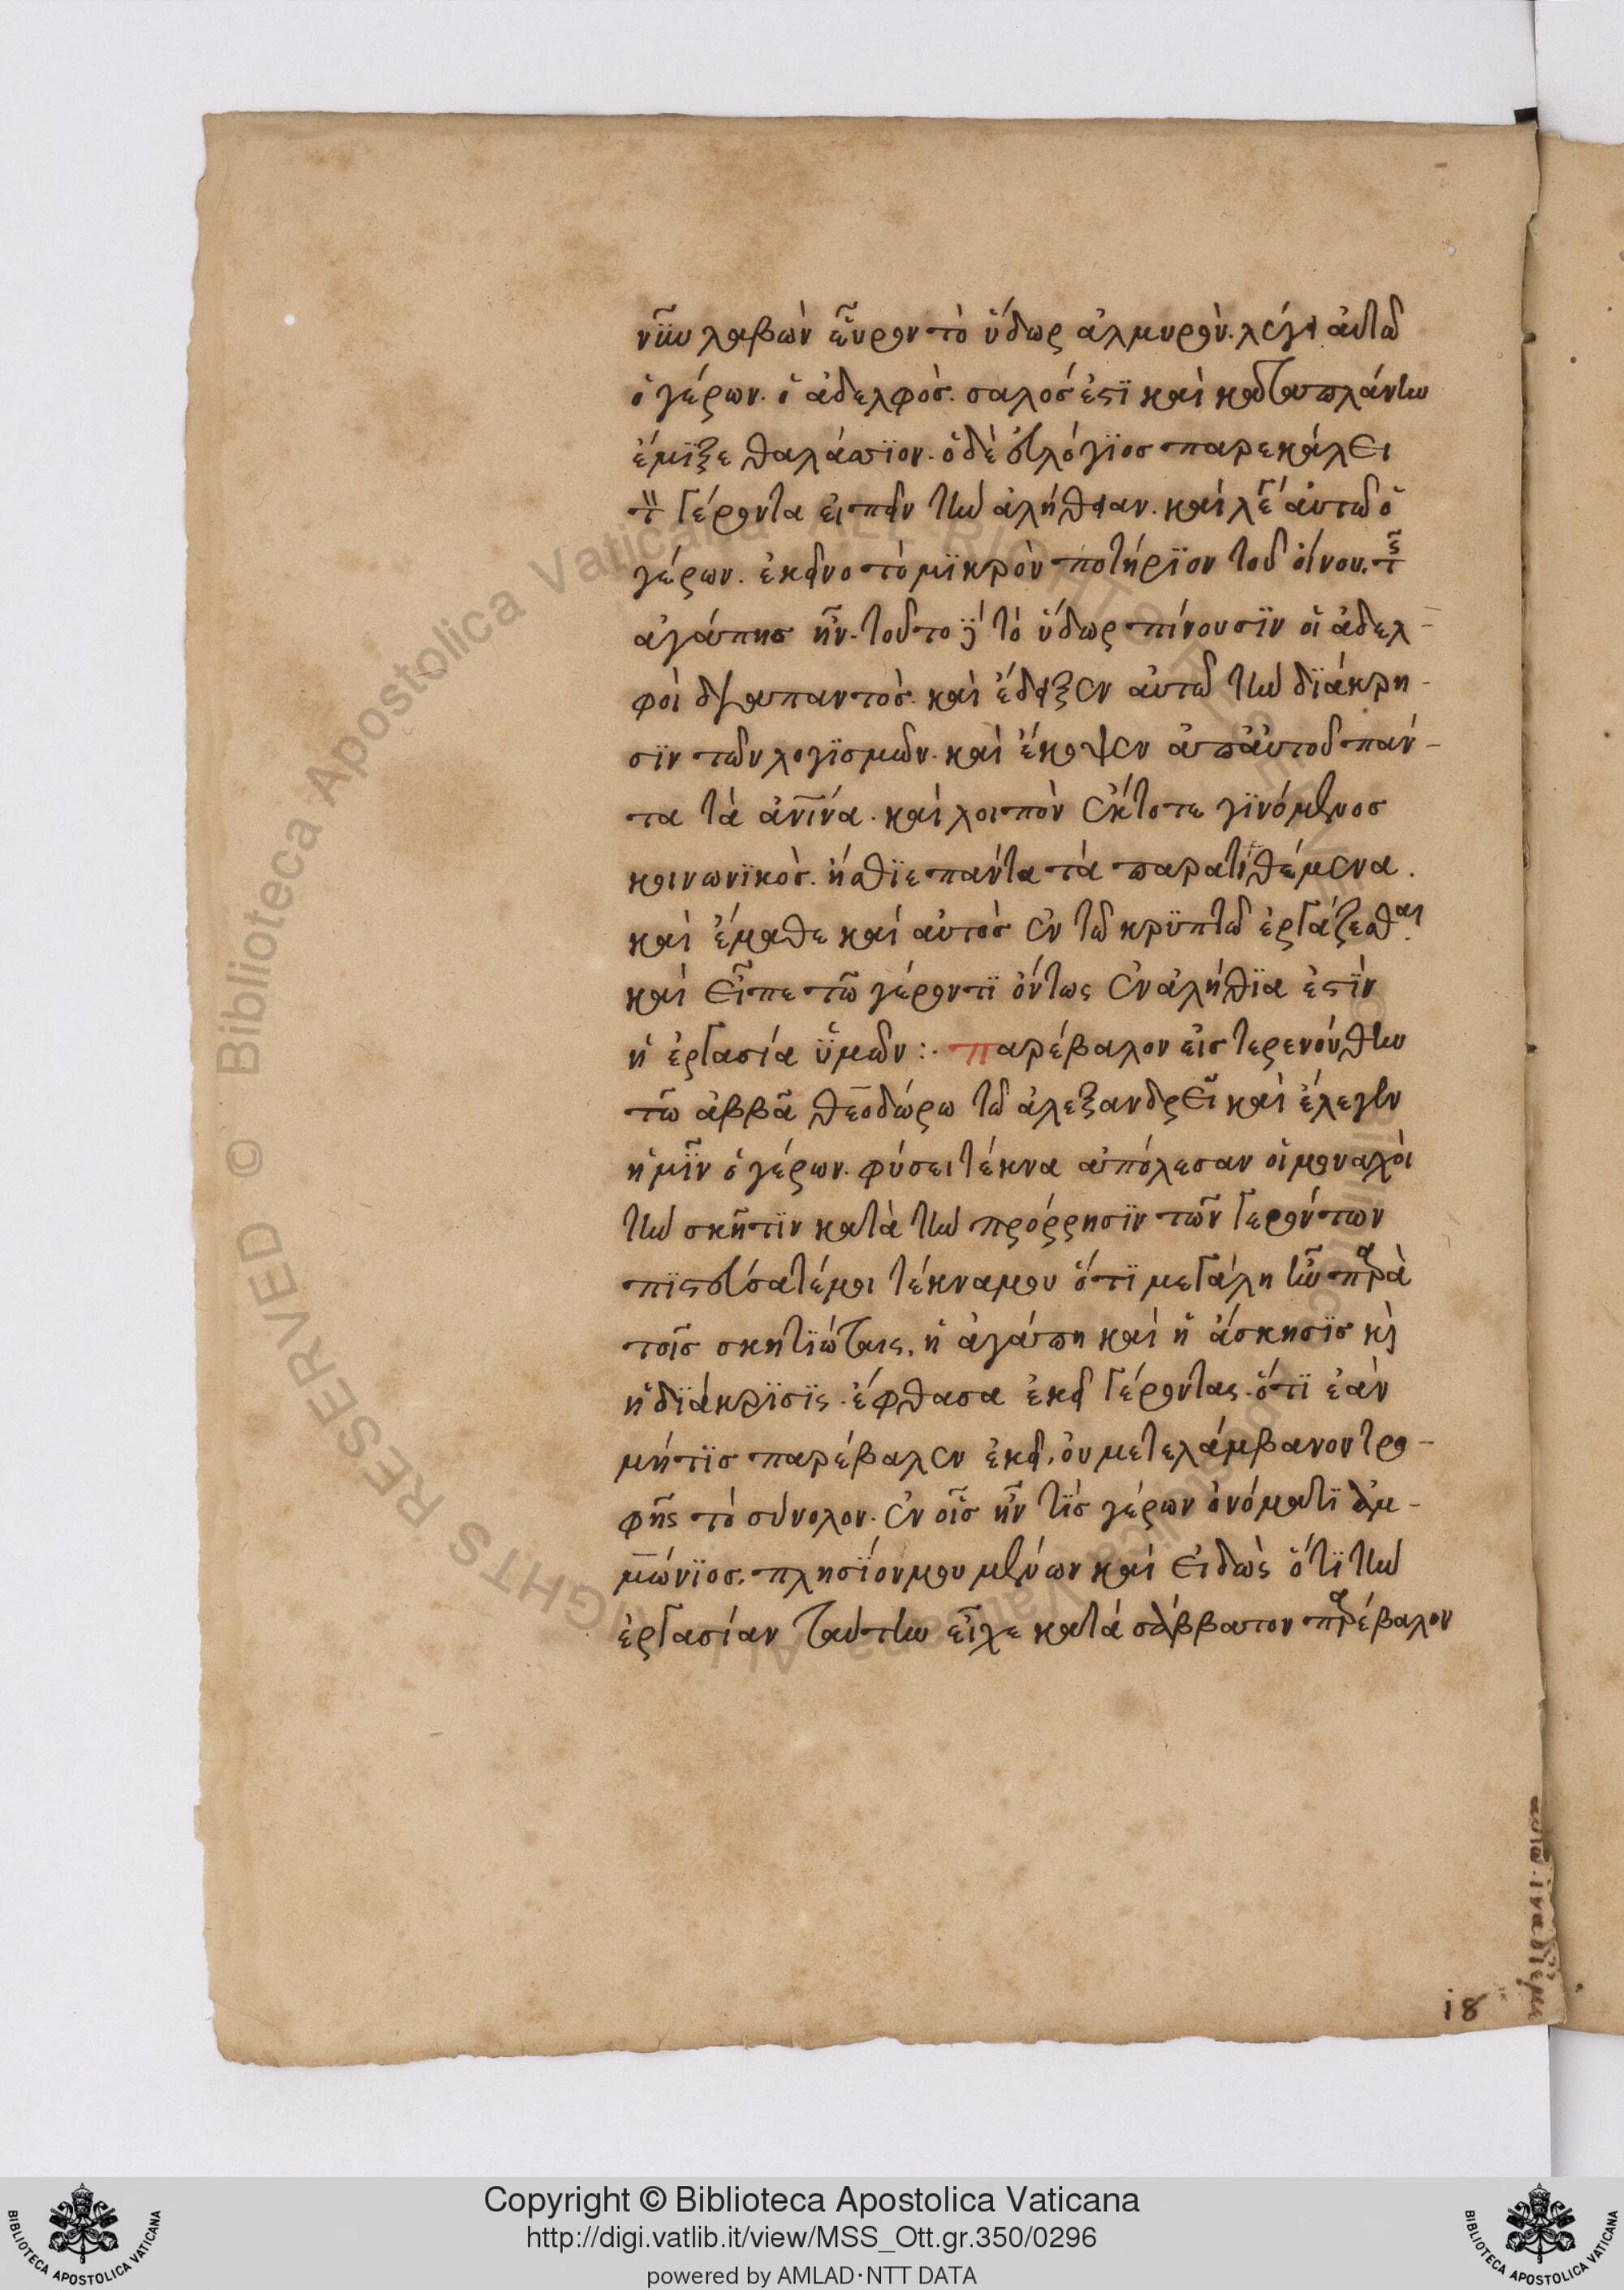 νῦν λαβὼν εὗρον τὸ ὕδωρ ἁλμυρόν. λέγει αὐτῶ
ὁ γέρων. ὁ ἀδελφὸς. σαλός ἐστϊ καὶ κατα πλάνην
ἔμϊξε θαλάσϊον. ὁ δὲ εὐλόγϊος παρεκάλει
τὸν γέροντα εἰπεῖν τὴν ἀλήθειαν. καὶ λέγει αὐτῶ ὁ
γέρων. ἐκεῖνο τὸ μϊκρὸν ποτήρϊον τοῦ οἴνου. τῆς
ἀγάπης ἦν. τοῦτο δέ τὸ ὕδωρ πίνουσϊν οἱ ἀδελ-
φοὶ δϊαπαντὸς. καὶ ἔδειξεν αὐτῶ τὴν δϊάκρη-
σϊν τῶν λογϊσμῶν. καὶ ἔκοψεν ἀπ' αὐτοῦ πάν-
τα τὰ ἀνϊνα. καὶ λοιπὸν ἔκτοτε γϊνόμενος
κοινωνϊκὸς. ἤσθϊε πάντα τὰ παρατιθέμενα.
καὶ ἔμαθε καὶ αὐτὸς ἐν τῶ κρϋπτῶ ἐργάζεσθαι.
καὶ εἶπε τῶ γέροντϊ ὄντως ἐν ἀλήθϊα ἐστϊν
ἡ ἐργασία ὑμῶν :. παρέβαλον εἰς τερενούθην
τῶ ἀββᾶ θεοδώρω τῶ ἀλεξανδρεῖ καὶ ἔλεγεν
ἡμῖν ὁ γέρων. φύσει τέκνα ἀπόλεσαν οἱ μοναχοὶ
τὴν σκῆτϊν κατὰ τὴν πρόρρησϊν τῶν γερόντων
πϊστεύσατέ μοι τέκνα μου ὅτϊ μεγάλη ἦν παρὰ
τοῖς σκητϊώταις. ἡ ἀγάπη καὶ ἡ ἄσκησϊς κὶ
ἡ δϊάκρϊσϊς. ἔφθασα ἐκεῖ γέροντας. ὅτϊ ἐὰν
μήτϊς παρέβαλεν ἐκεῖ. οὐ μετελάμβανον τρο-
φῆς τὸ σύνολον. ἐν οἷς ἦν τϊς γέρων ὀνόματϊ ἀμ-
μώνϊος. πλησίον μου μένων καὶ εἰδὼς ὅτϊ τὴν
ἐργασίαν ταύτην εἶχε κατὰ σάββατον παρέβαλον
18
Copyright © Biblioteca Apostolica Vaticana
http://digi.vatlib.it/view/MSS_Ott.gr.350/0296
powered by AMLAD·NTT DATA